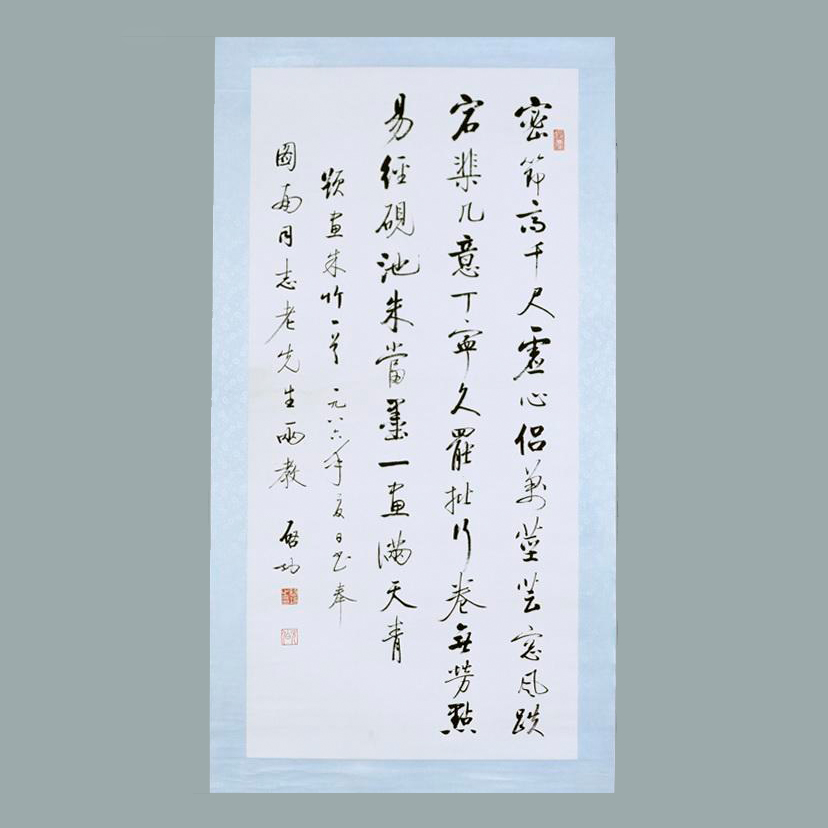 密節高千尺虛心侶萬莖芸窗風跌
宕棐几意丁寧久罷批行卷無勞點
易經硯池朱當墨一畫滿天青
題畫朱竹一首 一九八六年夏日書奉
國同志老先生兩教 啓功